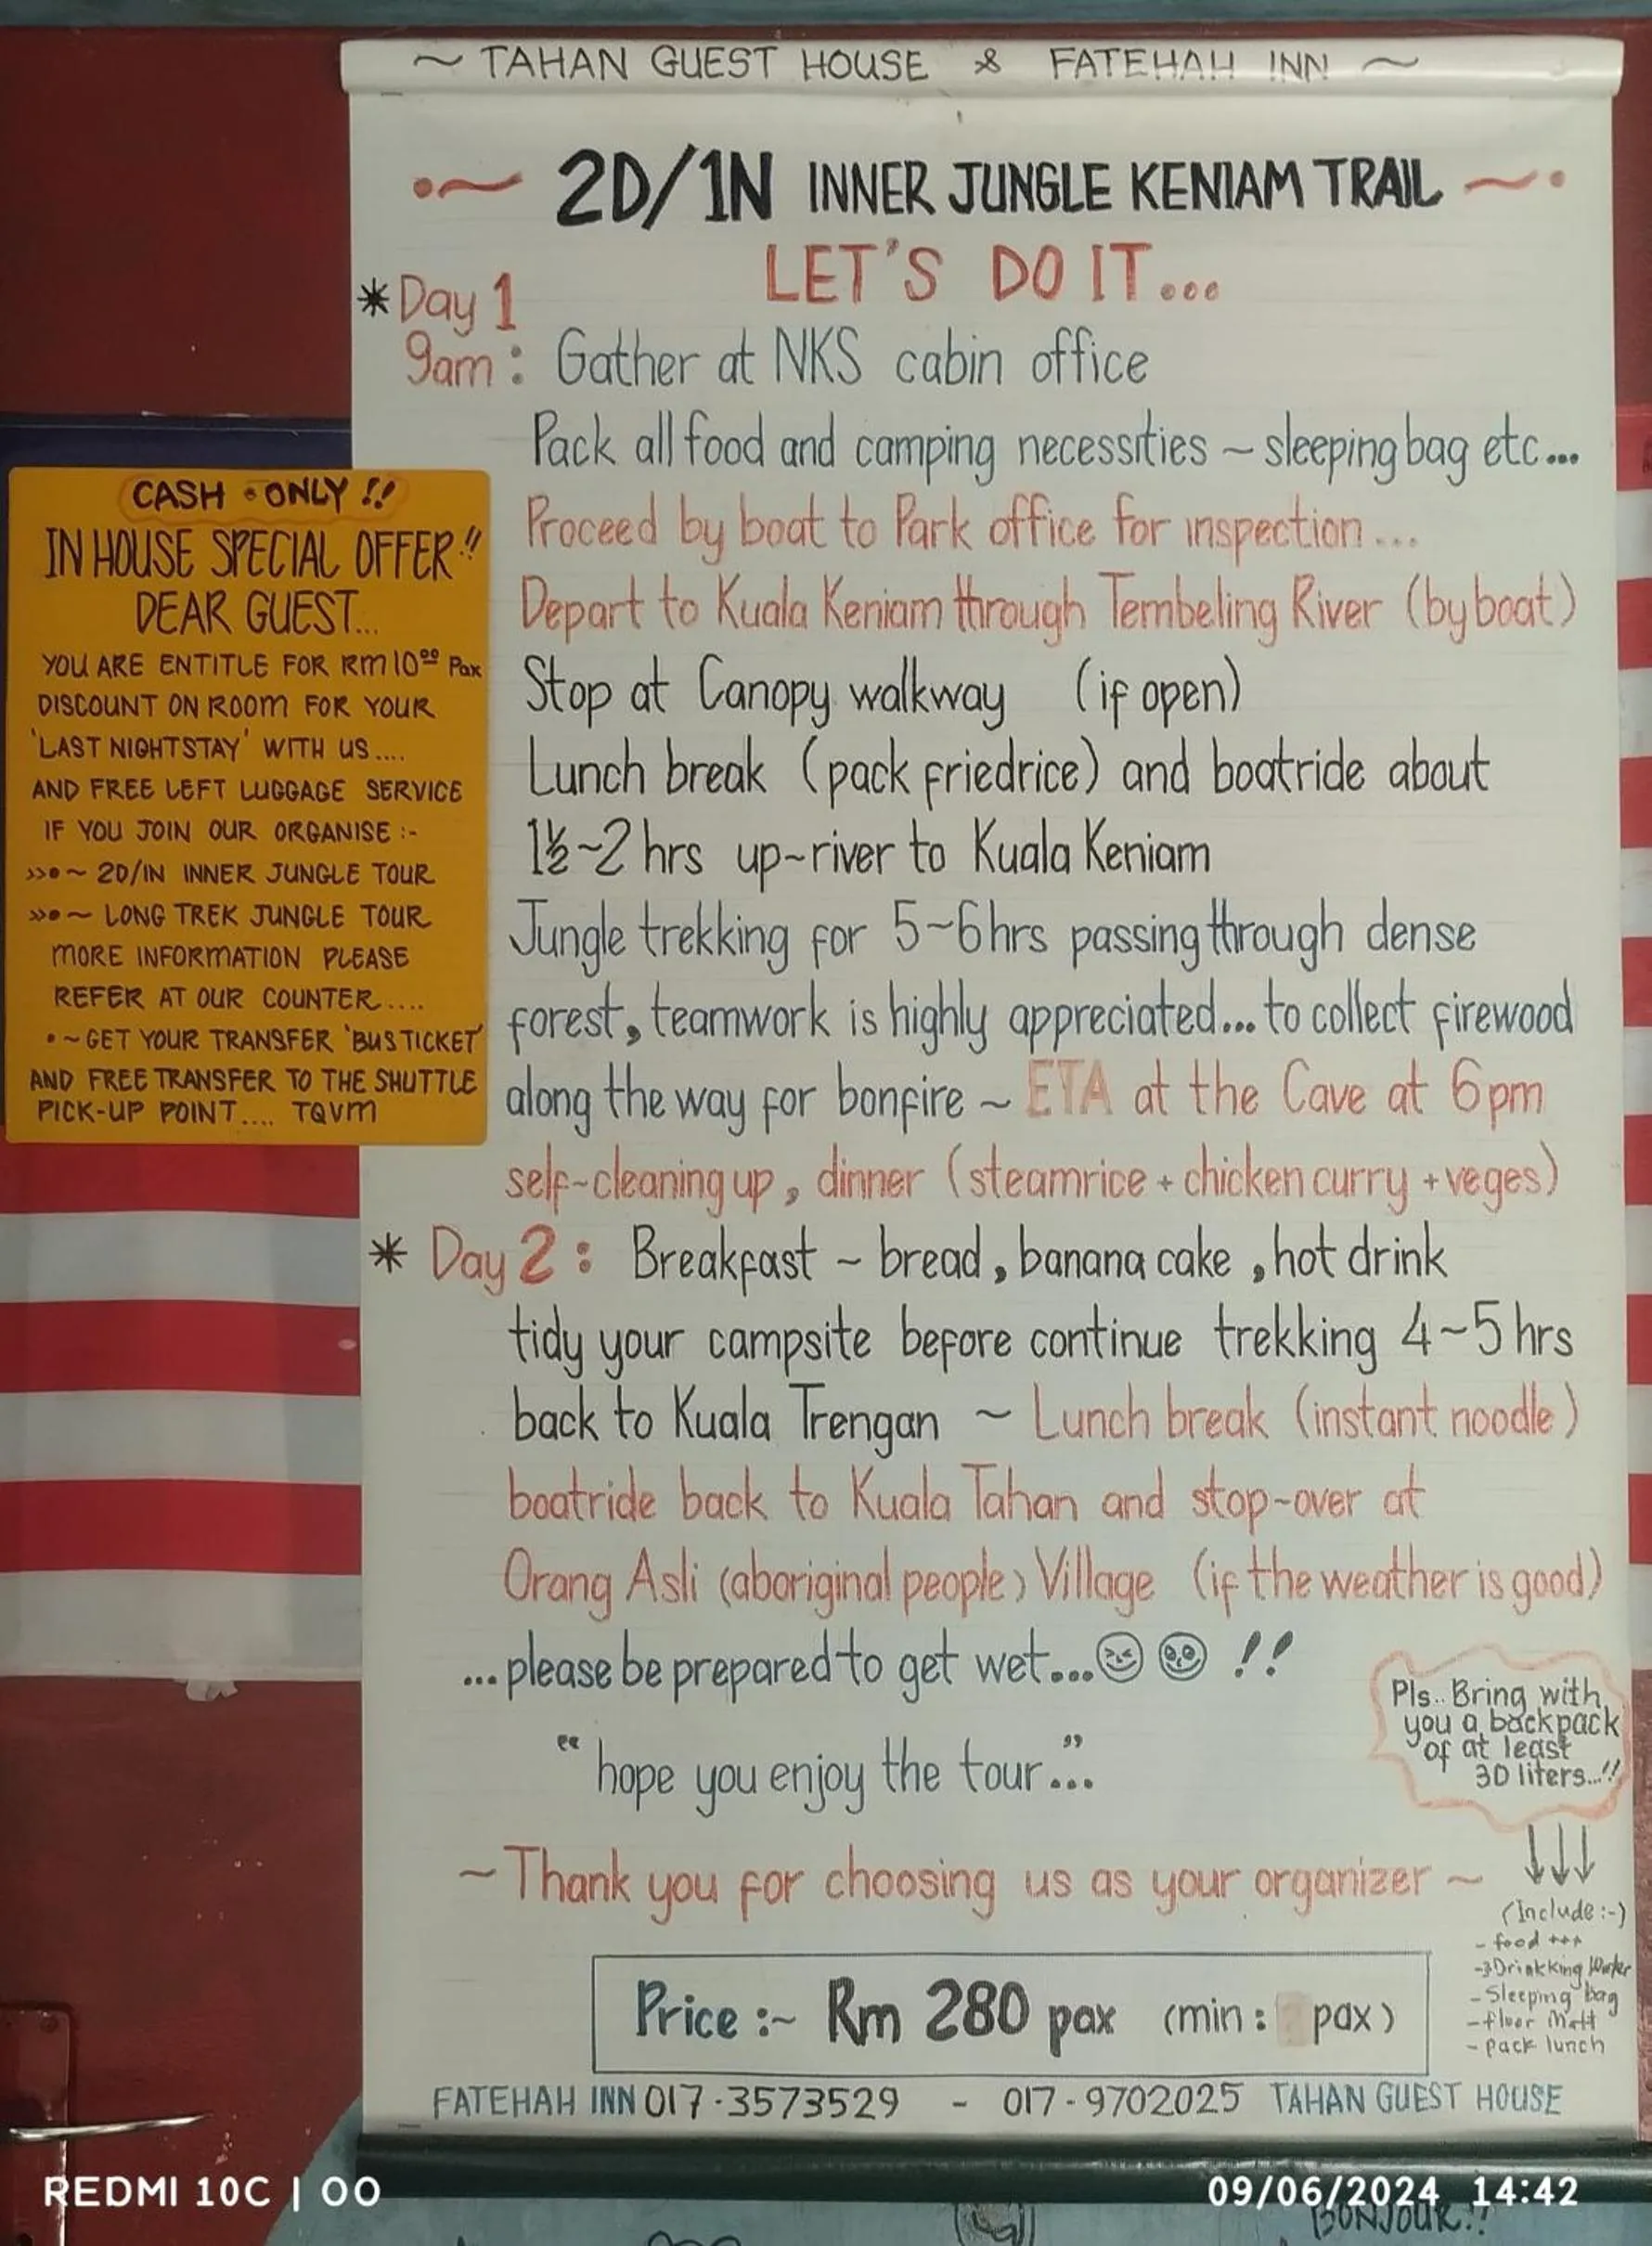 ~ TAHAN GUEST HOUSE & FATEHAH INN ~
2D/1N INNER JUNGLE KENIAM TRAIL
LET'S DO IT...
* Day 1
9am : Gather at NKS cabin office
Pack all food and camping necessities ~ sleeping bag etc...
Proceed by boat to Park office for inspection...
Depart to Kuala Keniam through Tembeling River (by boat)
Stop at Canopy walkway (if open)
Lunch break (pack friedrice) and boatride about
1½~2 hrs up-river to Kuala Keniam
Jungle trekking for 5~6hrs passing through dense
forest, teamwork is highly appreciated... to collect firewood
along the way for bonfire ~ ETA at the Cave at 6pm
self-cleaning up, dinner (steamrice + chicken curry + veges)
* Day 2 : Breakfast ~ bread, banana cake, hot drink
tidy your campsite before continue trekking 4~5 hrs
back to Kuala Trengan ~ Lunch break (instant noodle)
boatride back to Kuala Tahan and stop-over at
Orang Asli (aboriginal people) Village (if the weather is good)
...please be prepared to get wet...😆😍 !!
"hope you enjoy the tour..."
~ Thank you for choosing us as your organizer ~
Price :~ Rm 280 pax (min : pax)
FATEHAH INN 017-3573529 - 017-9702025 TAHAN GUEST HOUSE
Pls.. Bring with
you a backpack
of at least
30 liters...!!
(Include :-)
- food +++
- 3Drinkking Water
- Sleeping bag
- floor Matt
- pack lunch
CASH • ONLY !!
IN HOUSE SPECIAL OFFER !!
DEAR GUEST...
YOU ARE ENTITLE FOR RM10.00 Pax
DISCOUNT ON ROOM FOR YOUR
'LAST NIGHTSTAY' WITH US....
AND FREE LEFT LUGGAGE SERVICE
IF YOU JOIN OUR ORGANISE :-
>>• ~ 2D/1N INNER JUNGLE TOUR
>>• ~ LONG TREK JUNGLE TOUR
MORE INFORMATION PLEASE
REFER AT OUR COUNTER....
• ~ GET YOUR TRANSFER 'BUS TICKET'
AND FREE TRANSFER TO THE SHUTTLE
PICK-UP POINT.... TQVM
REDMI 10C | OO
09/06/2024 14:42
BONJOUR!!